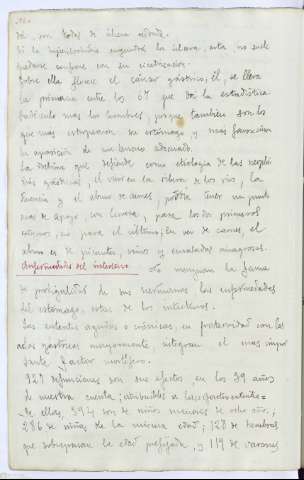 de, con todas de úlcera
Si la hiperclorhidria engendra la úlcera, esta no suele
quedarse siempre con su cicatrización.
Sobre ella florece el cáncer gástrico; él, se lleva
la primacía entre los 67 que da la estadística
padecido mas los hombres, porque también son los
que mas estropearon su estómago y mas favorecieron
la aparición de un terreno adecuado.
La doctrina que defiende como etiología de las neopla-
sias gástricas, el vivir en la ribera de los rios, la
herencia y el abuso de carnes, podría tener un punto
mas de apoyo en Cervera, para los dos primeros
extremos, no para el último; en vez de carnes, el
abuso es de picantes, vinos y ensaladas vinagrosas.
Enfermedades del intestino. - No menguan la fama
de prodigalidad de sus hermanas las enfermedades
del estómago, estas de los intestinos.
Las enteritis agudas o crónicas, en fraternidad con los
actos gástricos mayormente integran el mas impor-
tante factor mortífero.
929 defunciones son sus efectos, en los 39 años
de nuestra cuenta; atribuibles a
De ellas, 394 son de niños menores de ocho años;
286 de niñas de la misma edad; 128 de hembras
que sobrepasan la edad prefijada, y 119 de varones